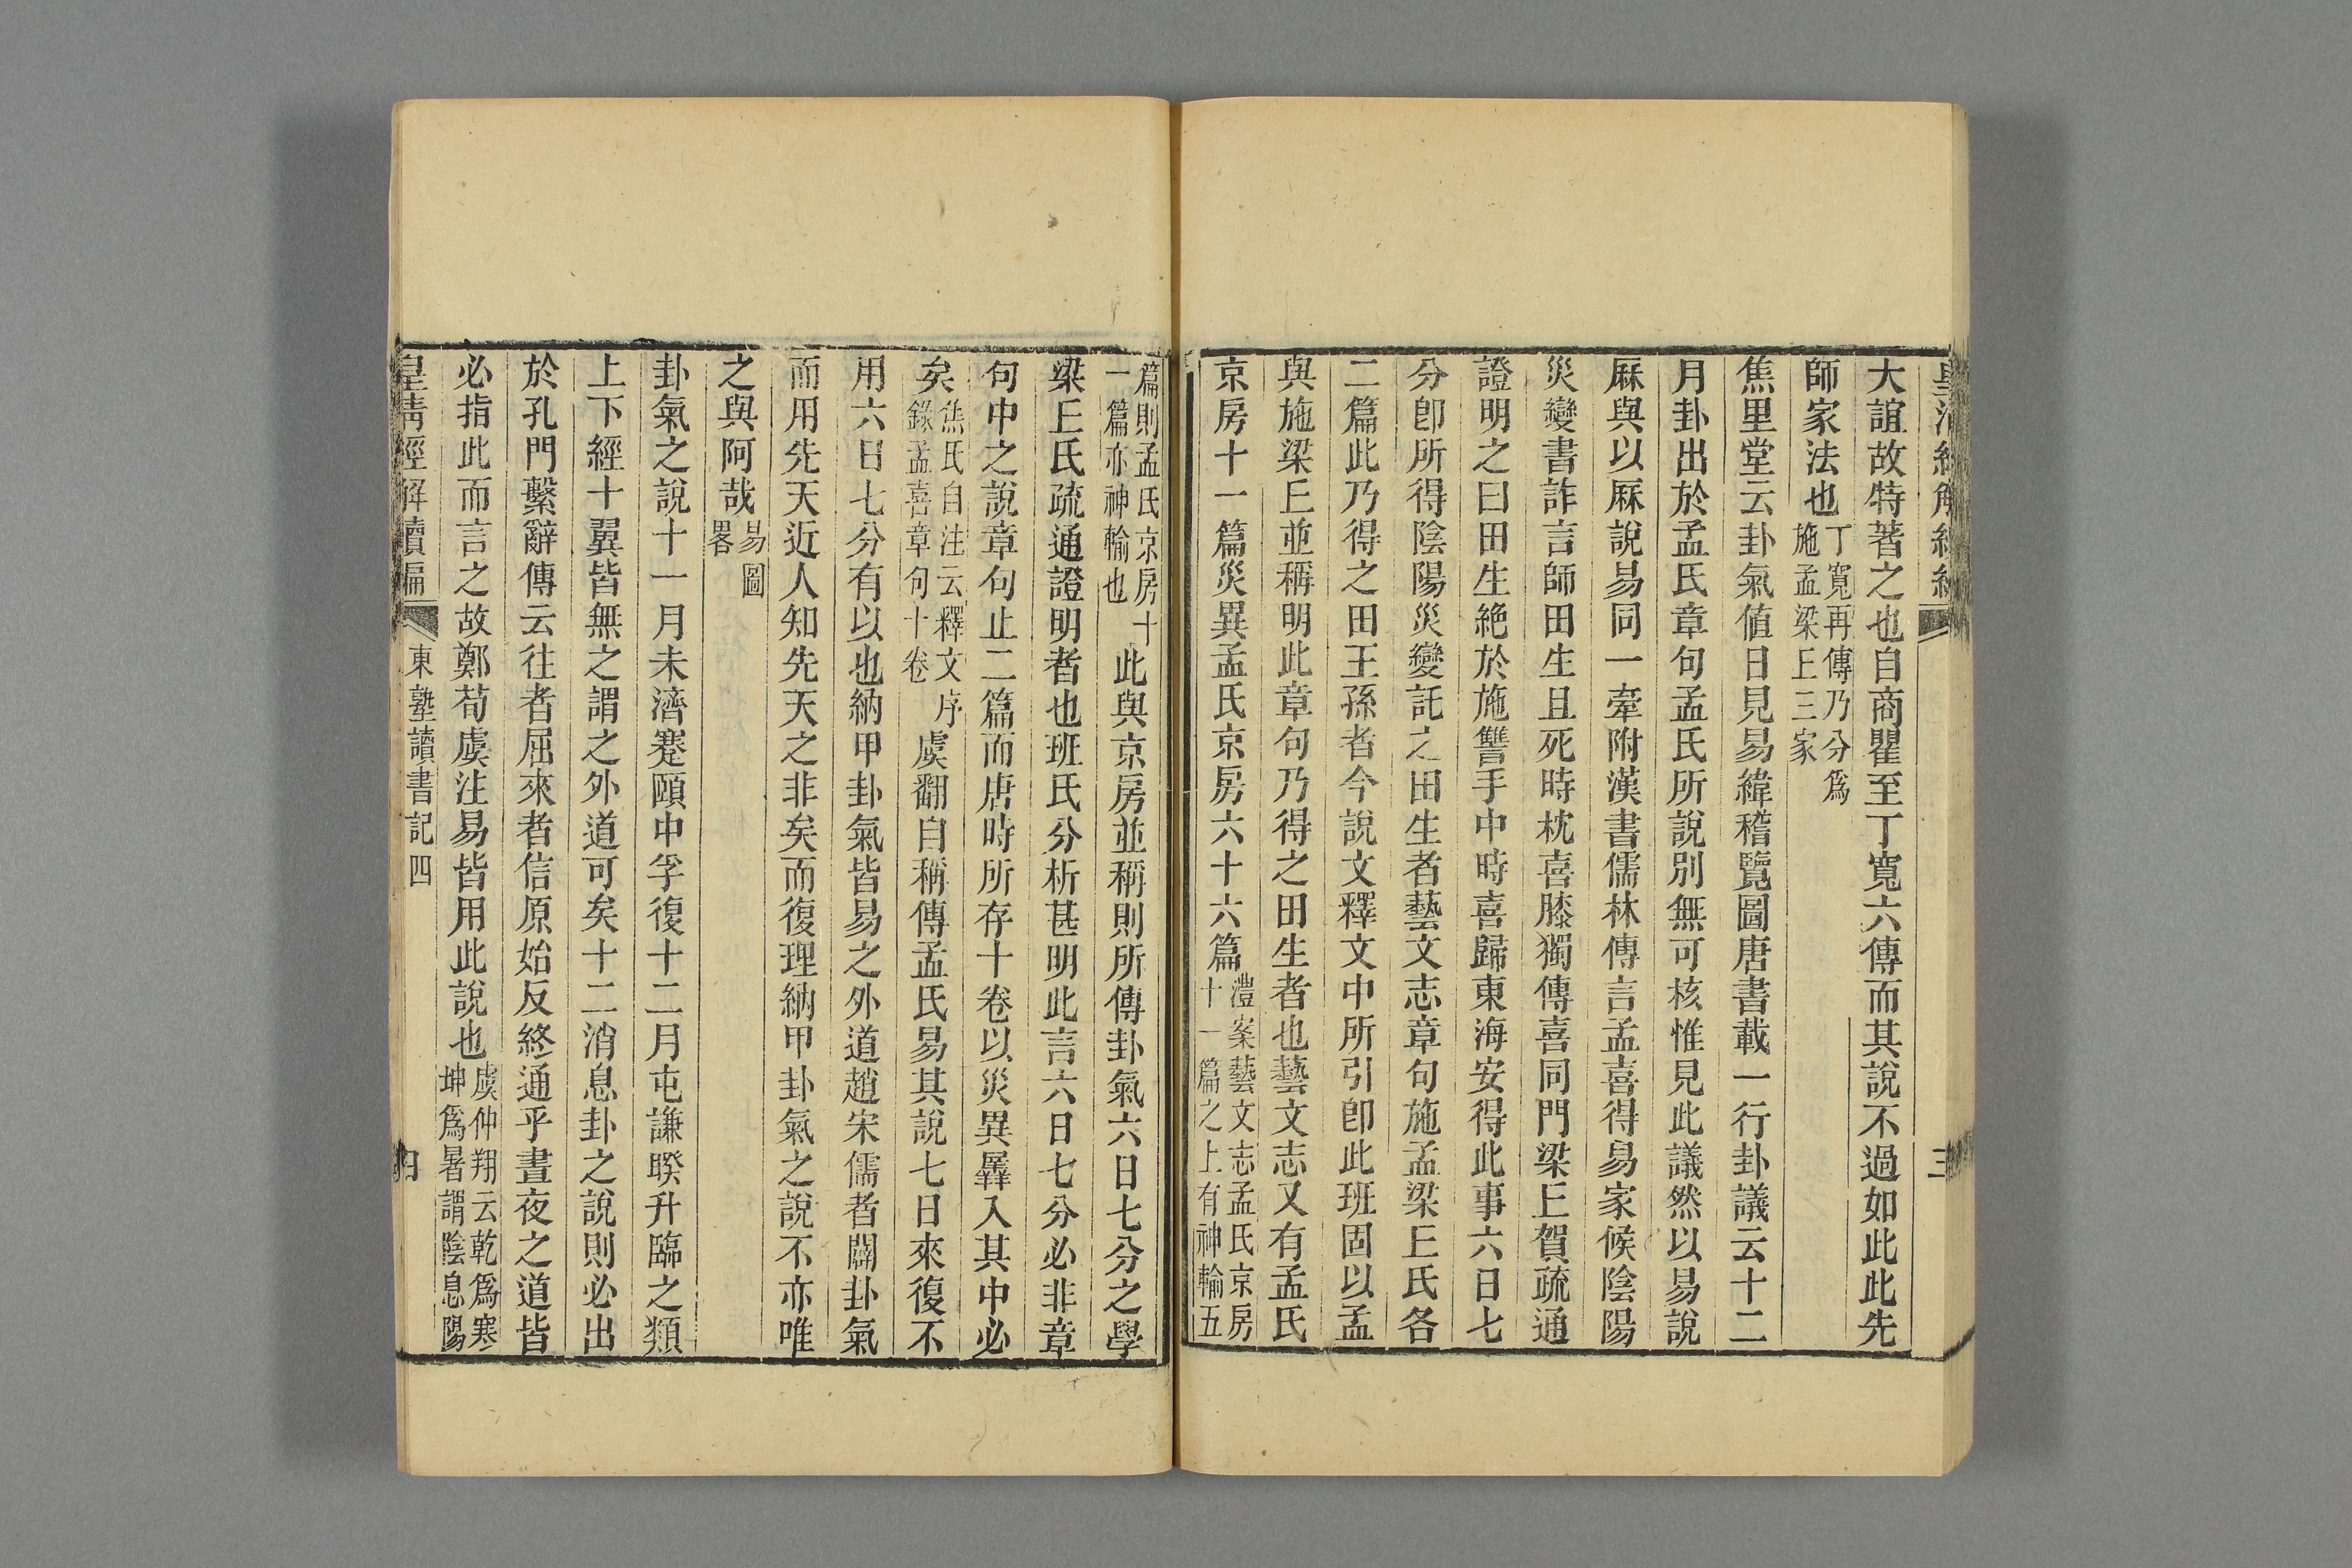 大誼故特著之也自商瞿至丁寬六傳而其說不過如此此先
師家法也丁寬再傳乃分爲施孟梁丘三家
焦里堂云卦氣値日見易緯稽覽圖唐書載一行卦議云十二
月卦出於孟氏章句孟氏所說別無可核惟見此議然以易說
厤與以厤說易同一牽附漢書儒林傳言孟喜得易家候陰陽
災變書詐言師田生且死時枕喜膝獨傳喜同門梁丘賀疏通
證明之曰田生絶於施讐手中時喜歸東海安得此事六日七
分卽所得陰陽災變託之田生者藝文志章句施孟梁丘氏各
二篇此乃得之田王孫者今說文釋文中所引卽此班固以孟
與施梁丘並稱明此章句乃得之田生者也藝文志又有孟氏
京房十一篇災異孟氏京房六十六篇澧案藝文志孟氏京房十一篇之上有神輸五
篇則孟氏京房十一篇亦神輸也此與京房並稱則所傳卦氣六日七分之學
梁丘氏疏通證明者也班氏分析甚明此言六日七分必非章
句中之說章句止二篇而唐時所存十卷以災異羼入其中必
矣焦氏自注云釋文序錄孟喜章句十卷虞翻自稱傳孟氏易其說七日來復不
用六日七分有以也納甲卦氣皆易之外道趙宋儒者闢卦氣
而用先天近人知先天之非矣而復理納甲卦氣之說不亦唯
之與阿哉易圖畧
卦氣之說十一月未濟蹇頤中孚復十二月屯謙睽升臨之類
上下經十翼皆無之謂之外道可矣十二消息卦之說則必出
於孔門繫辭傳云往者屈來者信原始反終通乎晝夜之道皆
必指此而言之故鄭荀虞注易皆用此說也虞仲翔云乾爲寒坤爲暑謂陰息陽
皇清經解續編 東塾讀書記四 四